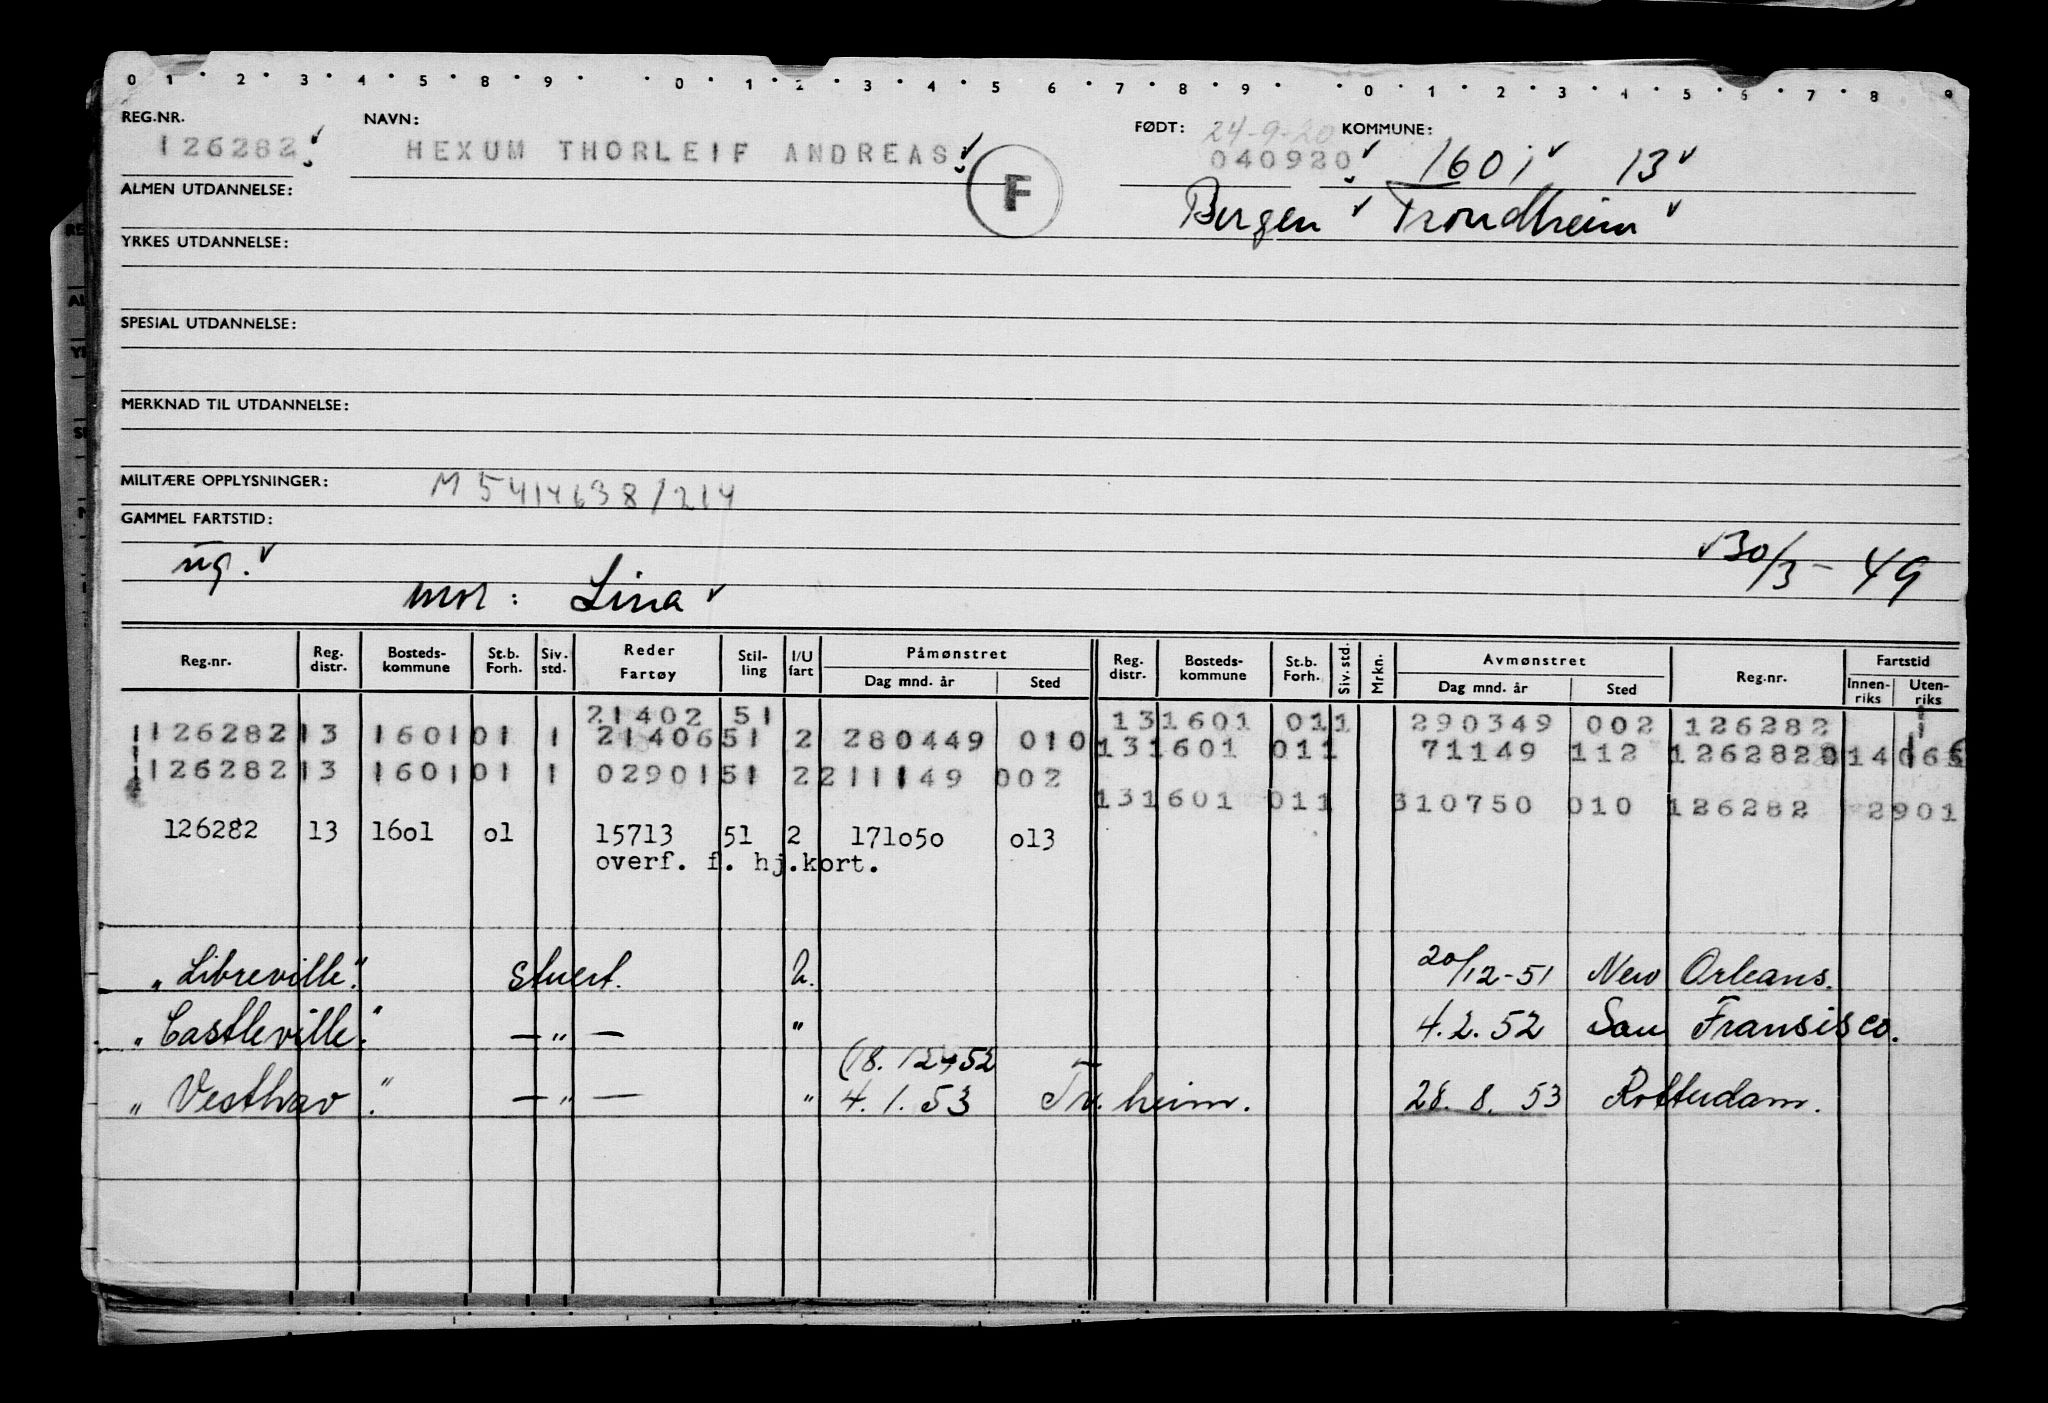 0 1 2 3 4 5 8 9 0 1 2 3 4 5 6 7 8 9 0 1 2 3 4 5 6 7 8 9
REG.NR. NAVN: FØDT: 24-9-20 KOMMUNE:
126282 HEXUM THORLEIF ANDREAS 040920 1601 13
F
ALMEN UTDANNELSE: Bergen Trondheim
YRKES UTDANNELSE:
SPESIAL UTDANNELSE:
MERKNAD TIL UTDANNELSE:
MILITÆRE OPPLYSNINGER: M 5414638/214
GAMMEL FARTSTID:
ug. 30/3-49
mor: Lina
Reg.nr. Reg. distr. Bosteds-kommune St.b. Forh. Siv. std. Reder Fartøy Stil-ling I/U fart Påmønstret Dag mnd. år Sted Reg. distr. Bosteds-kommune St.b. Forh. Siv. std. Mrkn. Avmønstret Dag mnd. år Sted Reg.nr. Fartstid Innen-riks Uten-riks
21402 51 131601 011 290349 002 126282
1126282 13 1601 01 1 21406 51 2 280449 010 131601 011 71149 112 126282
1126282 13 1601 01 1 02901 51 2 211149 002
131601 011 310750 010 126282 2901
126282 13 16o1 o1 15713 51 2 171o5o o13
overf. f. hj.kort.
"Libreville". stuert. U. 20/12-51 New Orleans.
"Castleville". —"— " 4.2.52 San Fransisco.
(18.12-52
"Vesthav". —"— " 4.1.53 Tr.heim. 28.8.53 Rotterdam.